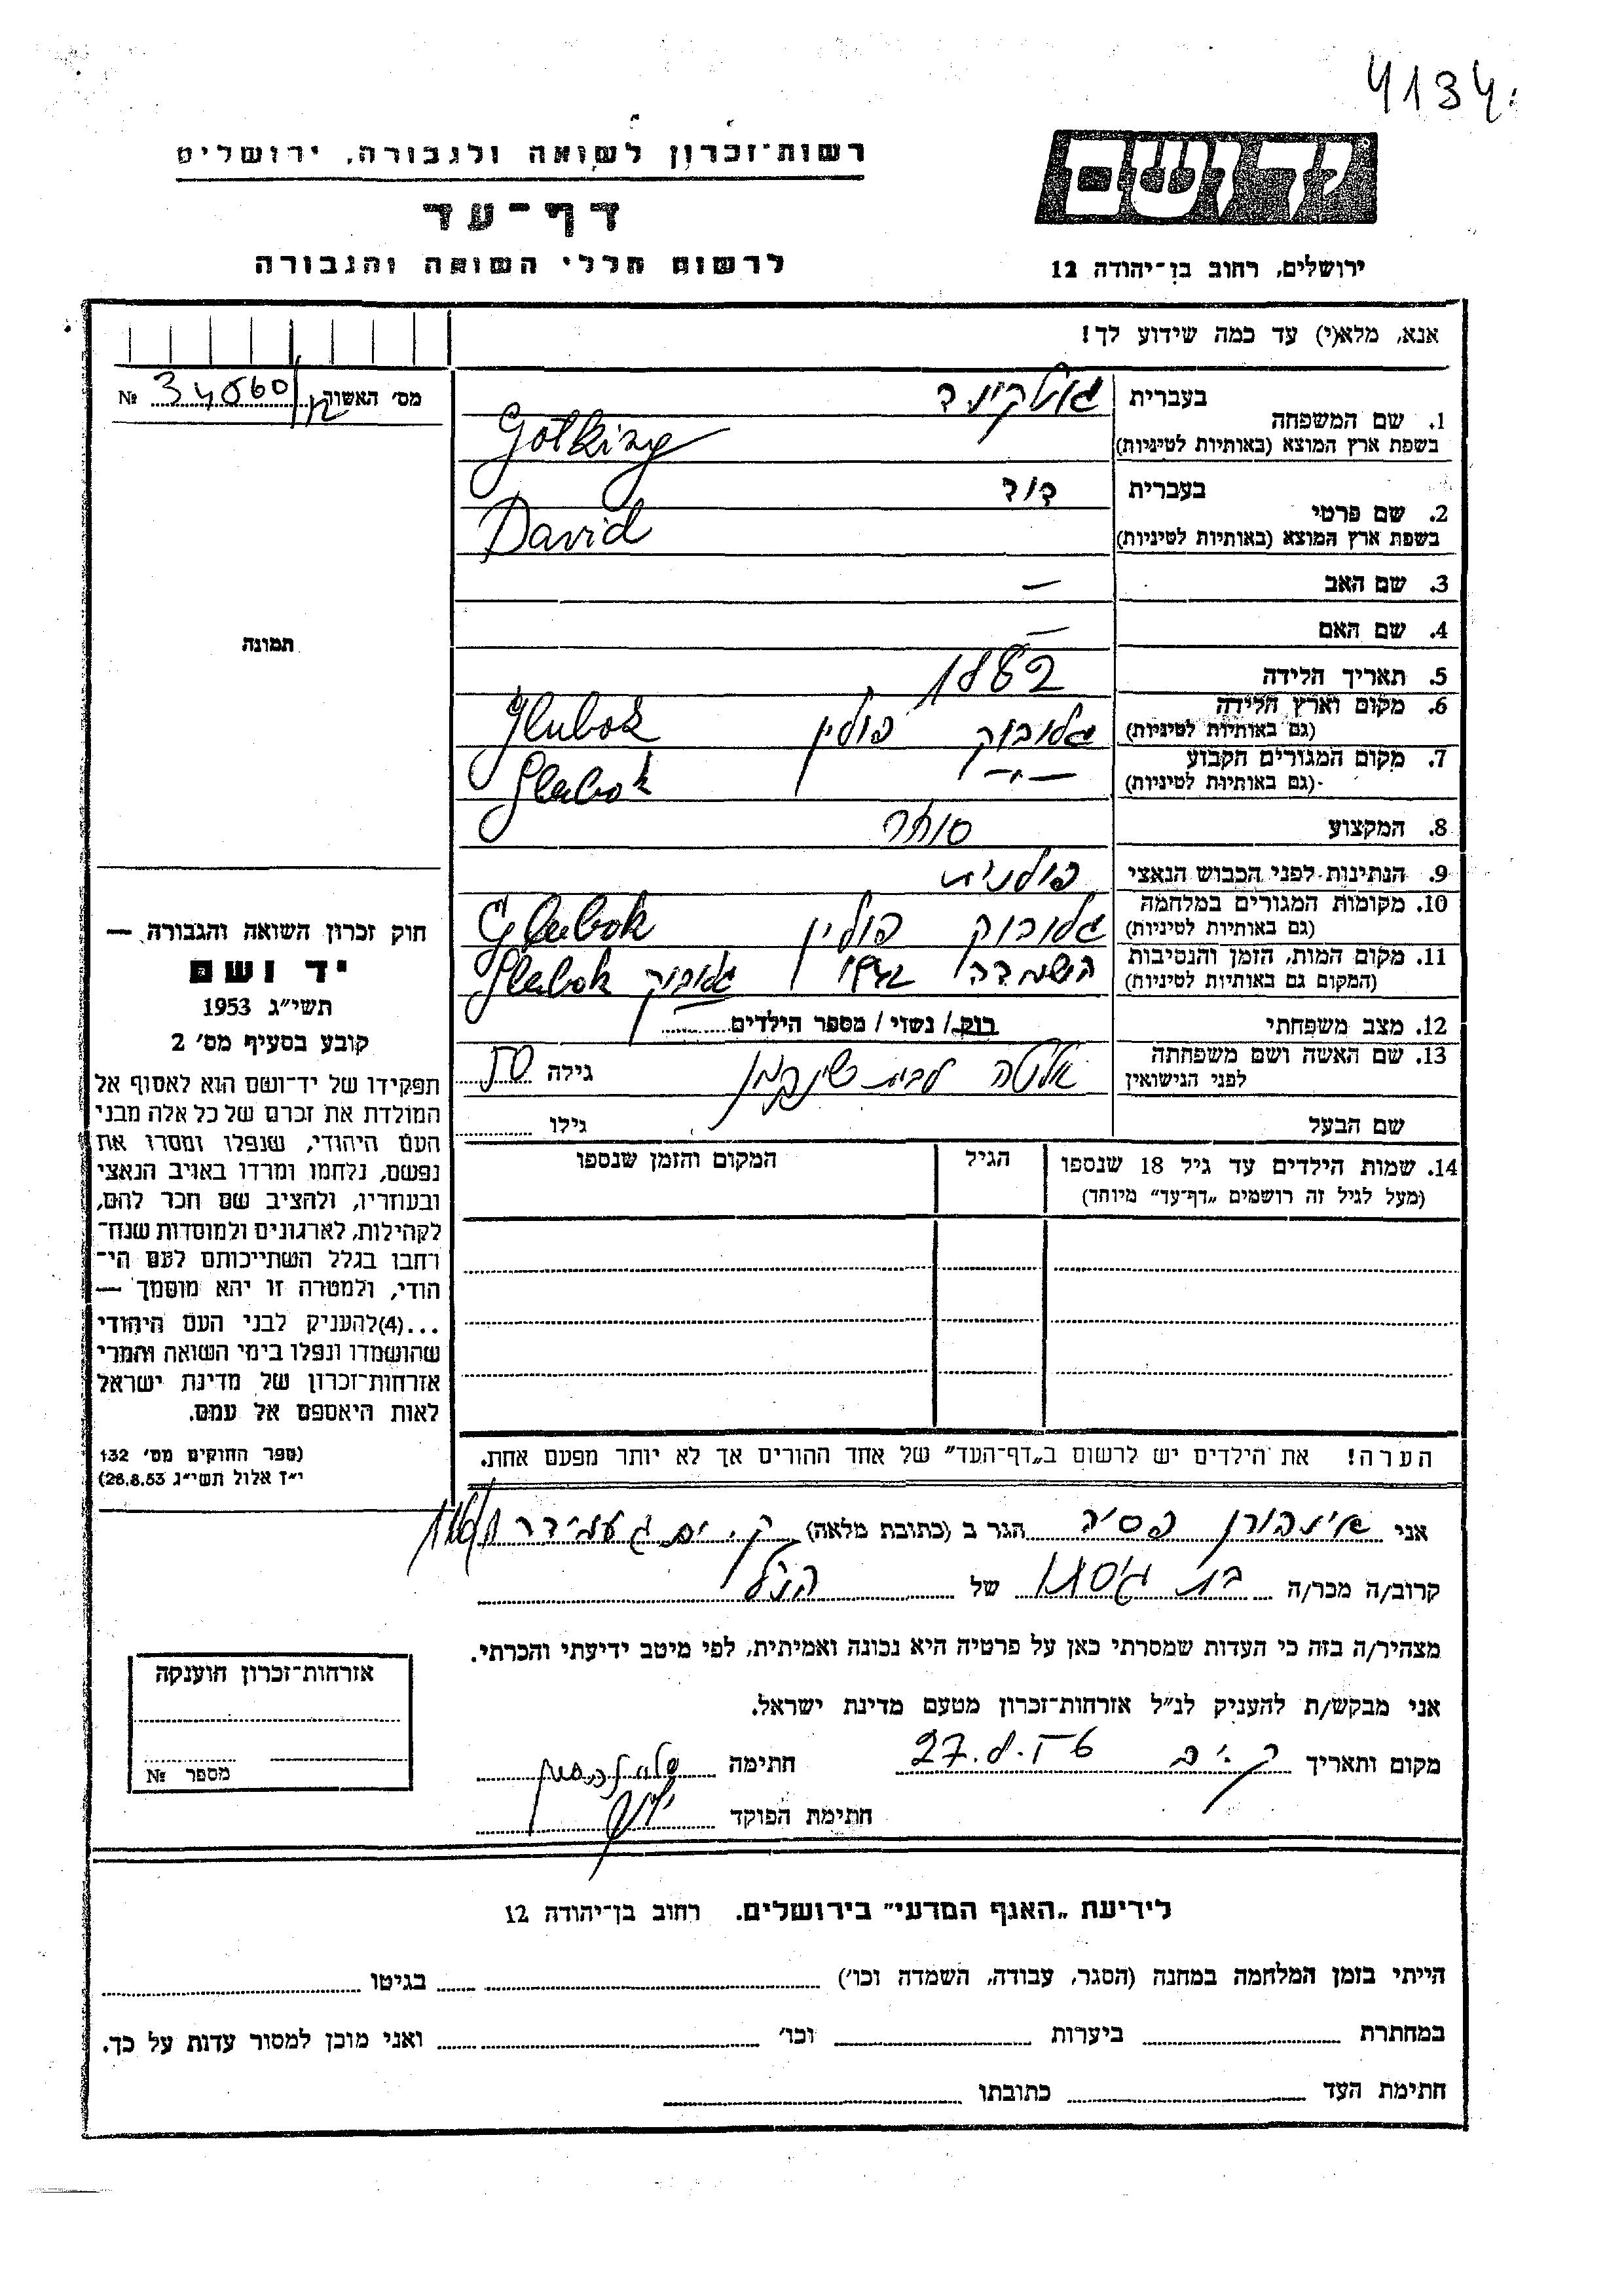 4134
רשות־זכרון לשואה ולגבורה, ירושלים
יד ושם
דף־עד
לרשום חללי השואה והגבורה
ירושלים, רחוב בן־יהודה 12
אנא, מלא(י) עד כמה שידוע לך!
מס׳ האשור № 34560
1. שם המשפחה
בעברית גוטקינד
בשפת ארץ המוצא (באותיות לטיניות) Gotking
2. שם פרטי
בעברית דוד
בשפת ארץ המוצא (באותיות לטיניות) David
3. שם האב —
4. שם האם —
5. תאריך הלידה 1882
6. מקום וארץ הלידה גלובוק פולין Glubok
(גם באותיות לטיניות)
7. מקום המגורים הקבוע —״— Glubok
(גם באותיות לטיניות)
8. המקצוע סוחר
9. הנתינות לפני הכבוש הנאצי פולנית
10. מקומות המגורים במלחמה גלובוק פולין Glubok
(גם באותיות לטיניות)
11. מקום המות, הזמן והנסיבות השמדה 1942 גלובוק Glubok
(המקום גם באותיות לטיניות)
12. מצב משפחתי רוק / נשוי / מספר הילדים
13. שם האשה ושם משפחתה לבית גילה 50
לפני הנישואין
שם הבעל גילו
14. שמות הילדים עד גיל 18 שנספו הגיל המקום והזמן שנספו
(מעל לגיל זה רושמים „דף־עד” מיוחד)
הערה! את הילדים יש לרשום ב„דף־העד” של אחד ההורים אך לא יותר מפעם אחת.
תמונה
חוק זכרון השואה והגבורה —
יד ושם
תשי״ג 1953
קובע בסעיף מס׳ 2
תפקידו של יד־ושם הוא לאסוף אל
המולדת את זכרם של כל אלה מבני
העם היהודי, שנפלו ומסרו את
נפשם, נלחמו ומרדו באויב הנאצי
ובעוזריו, ולהציב שם וזכר להם,
לקהילות, לארגונים ולמוסדות שנח־
רבו בגלל השתייכותם לעם הי־
הודי, ולמטרה זו יהא מוסמך —
...(4)להעניק לבני העם היהודי
שהושמדו ונפלו בימי השואה והמרי
אזרחות־זכרון של מדינת ישראל
לאות היאספם אל עמם.
(ספר החוקים מס׳ 132
י״ז אלול תשי״ג 28.8.53)
אני הגר ב (כתובת מלאה) ק. ים
קרוב/ה מכר/ה של הנ״ל
מצהיר/ה בזה כי העדות שמסרתי כאן על פרטיה היא נכונה ואמיתית, לפי מיטב ידיעתי והכרתי.
אני מבקש/ת להעניק לנ״ל אזרחות־זכרון מטעם מדינת ישראל.
מקום ותאריך 27.8.56 חתימה
חתימת הפוקד
אזרחות־זכרון הוענקה
מספר №
לידיעת „האגף המדעי” בירושלים. רחוב בן־יהודה 12
הייתי בזמן המלחמה במחנה (הסגר, עבודה, השמדה וכו׳) בגיטו
במחתרת ביערות וכו׳ ואני מוכן למסור עדות על כך.
חתימת העד כתובתו